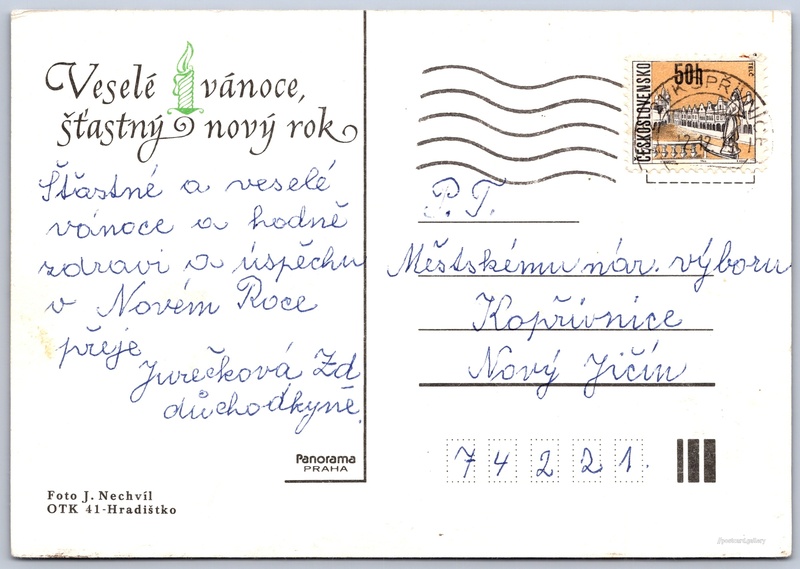 Veselé vánoce,
šťastný nový rok
Šťastné a veselé
vánoce a hodně
zdraví a úspěchu
v Novém Roce
přeje
Jurečková Zd
důchodkyně.
Panorama
PRAHA
Foto J. Nechvíl
OTK 41-Hradištko
ČESKOSLOVENSKO
50h
TELČ
KOPŘIVNICE
P. T.
Městskému nár. výboru
Kopřivnice
Nový Jičín
74221.